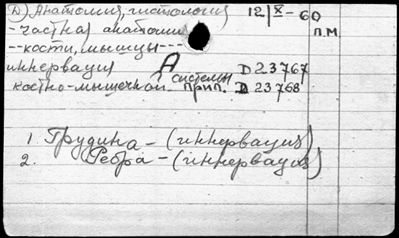 D) Анатомия, гистология 12/X-60
- частная анатомия п.м.
-- кости, мышцы ---
иннервация А системы D23767
костно-мышечной. Прип. D 23768
1. Грудина - (иннервация)
2. Ребра - (иннервация)